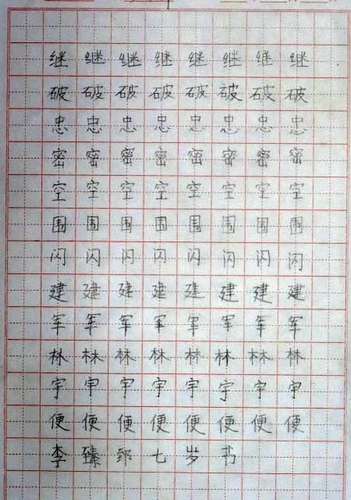 继继继继继继继继
破破破破破破破破
忠忠忠忠忠忠忠忠
密密密密密密密密
空空空空空空空空
围围围围围围围围
闪闪闪闪闪闪闪闪
建建建建建建建建
军军军军军军军军
林林林林林林林林
宇宇宇宇宇宇宇宇
便便便便便便便便
李臻七岁书